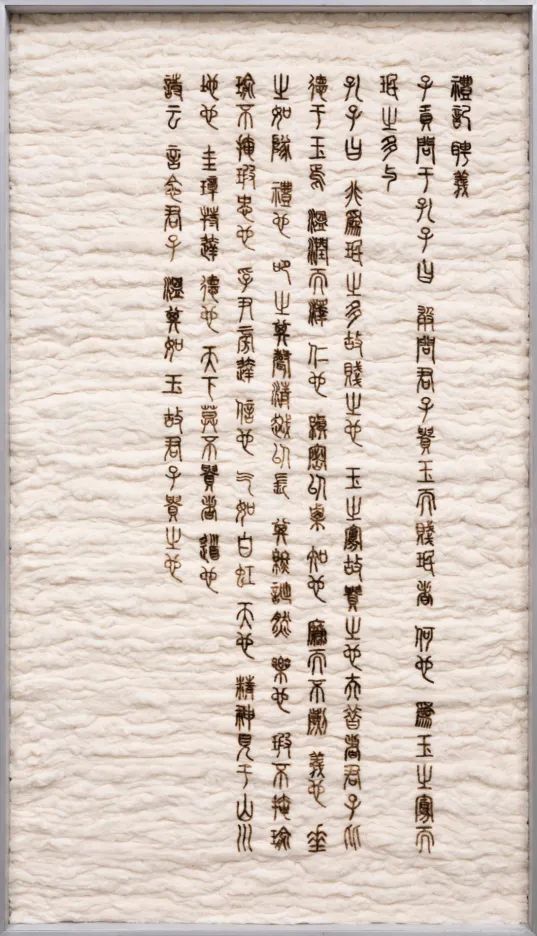 禮記聘義
子貢問于孔子曰敢問君子貴玉而賤珉者何也為玉之寡而
珉之多與
孔子曰非為珉之多故賤之也玉之寡故貴之也夫昔者君子比
德于玉焉溫潤而澤仁也縝密以栗知也廉而不劌義也垂
之如隊禮也叩之其聲清越以長其終詘然樂也瑕不揜瑜
瑜不揜瑕忠也孚尹旁達信也氣如白虹天也精神見于山川
地也圭璋特達德也天下莫不貴者道也
詩云言念君子溫其如玉故君子貴之也